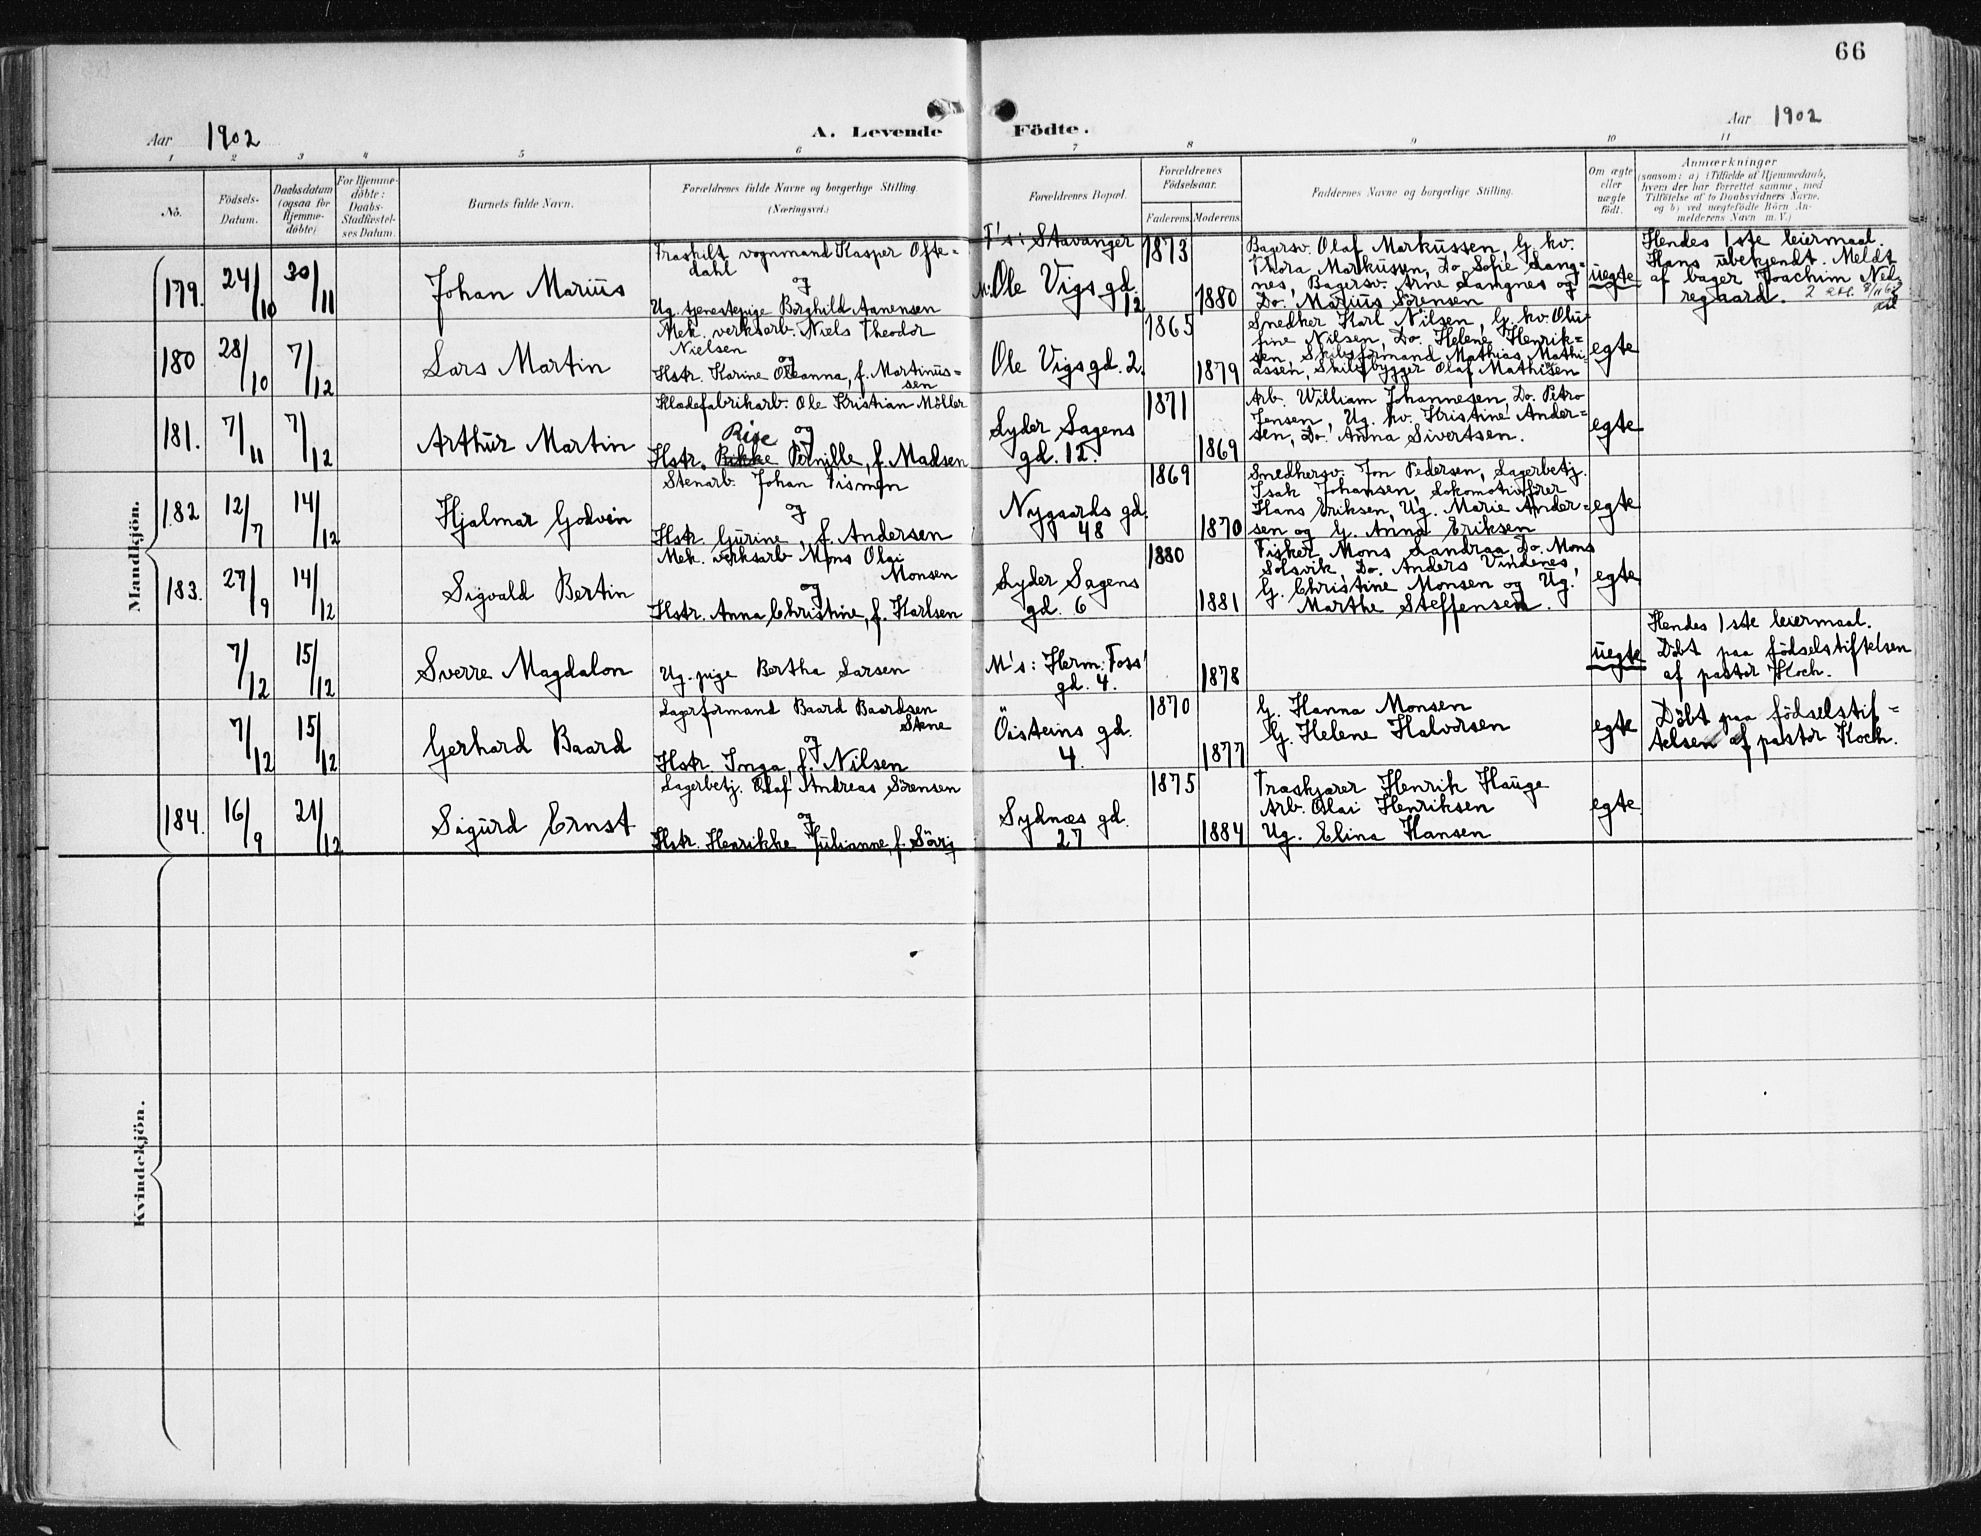 66
Aar 1902
A. Levende Födte.
Aar 1902
1 2 3 4 5 6 7 8 9 10 11
No.
Födsels-
Datum.
Daabsdatum
(ogsaa for
Hjemme-
döbte)
For Hjemme-
döbte:
Daabs-
Stadfæstel-
ses Datum.
Barnets fulde Navn.
Forældrenes fulde Navne og borgerlige Stilling.
(Næringsvei.)
Forældrenes Bopæl.
Forældrenes
Födselsaar.
Faderens Moderens
Faddernes Navne og borgerlige Stilling.
Om ægte
eller
uægte
födt.
Anmærkninger
(saasom: a) i Tilfælde af Hjemmedaab,
hvem der har forrettet samme, med
Tilföielse af to Daabsvidners Navne,
og b) ved uægtefödte Börn An-
melderens Navn m. V.)
Mandkjön.
179. 24/10 30/11
Johan Marius
Fraskilt vognmand Kasper Ofte-
dahl
og
Ug. tjenestepige Borghild Aanensen
F's: Stavanger
M: Ole Vigs gd.
12
1873
1880
Bagersv. Olaf Markussen, G. kv.
Thora Markussen, Do. Sofie Lang-
nes, Bagersv. Arne Langnes og
Do. Marius Sörensen
uegte
Hendes 1ste leiermaal.
Hans ubekjendt. Meldt
af bager Joachim Ned-
regaard.
180 28/10 7/12
Lars Martin
Mek. verksarb. Niels Theodor
Nielsen
og
Hstr. Karine Oleanna, f. Martinus-
sen
Ole Vigs gd. 2.
1865
1879
Snedker Karl Nilsen, G. kv. Olu-
fine Nilsen, Do. Helene Henrik-
sen, Skibsformand Mathias Mathi-
assen, Skibsbygger Olaf Mathisen
egte
181. 7/11 7/12
Arthur Martin
Klædefabrikarb. Ole Kristian Möller
og
Rise
Hstr. Rikke Pernille, f. Madsen
Lyder Sagens
gd. 12.
1871
1869
Arb. William Johannesen, Do. Petro
Jensen, Ug. kv. Kristine Ander-
sen, Do. Anna Sivertsen.
egte
182 12/7 14/12
Hjalmar Godvin
Stenarb. Johan Tismen
og
Hstr. Gurine, f. Andersen
Nygaards gd.
48
1869
1870
Snedkersv. Jon Pedersen, Lagerbetj.
Isak Johansen, Lokomotivförer
Hans Eriksen, Ug. Marie Ander-
sen og G. Anna Eriksen
egte
183. 27/9 14/12
Sigvald Bertin
Mek. verksarb Mons Olai
Monsen
og
Hstr. Anna Christine, f. Karlsen
Lyder Sagens
gd. 6
1880
1881
Fisker Mons Landraa, Do. Mons
Solsvik, Do. Anders Vindenes,
G. Christine Monsen og Ug.
Marthe Steffensen.
egte
7/12 15/12
Sverre Magdalon
Ug. pige Bertha Larsen
M's: Herm: Foss'
gd. 4.
1878
uegte
Hendes 1ste leiermaal.
Döbt paa födselstiftelsen
af pastor Koch.
7/12 15/12
Gerhard Baard
Lagerformand Baard Baardsen
Stene
og
Hstr. Inga, f. Nilsen
Öisteins gd.
4.
1870
1877
G. Hanna Monsen
G. Helene Halvorsen
egte
Döbt paa födselstif-
telsen af pastor Koch.
184. 16/9 21/12
Sigurd Ernst
Lagerbetj. Olaf Andreas Sörensen
og
Hstr. Henrikke Julianne, f. Sörij
Sydnæs gd.
27
1875
1884
Træskjærer Henrik Hauge
Arb. Olai Henriksen
Ug. Elina Hansen
egte
Kvindekjön.